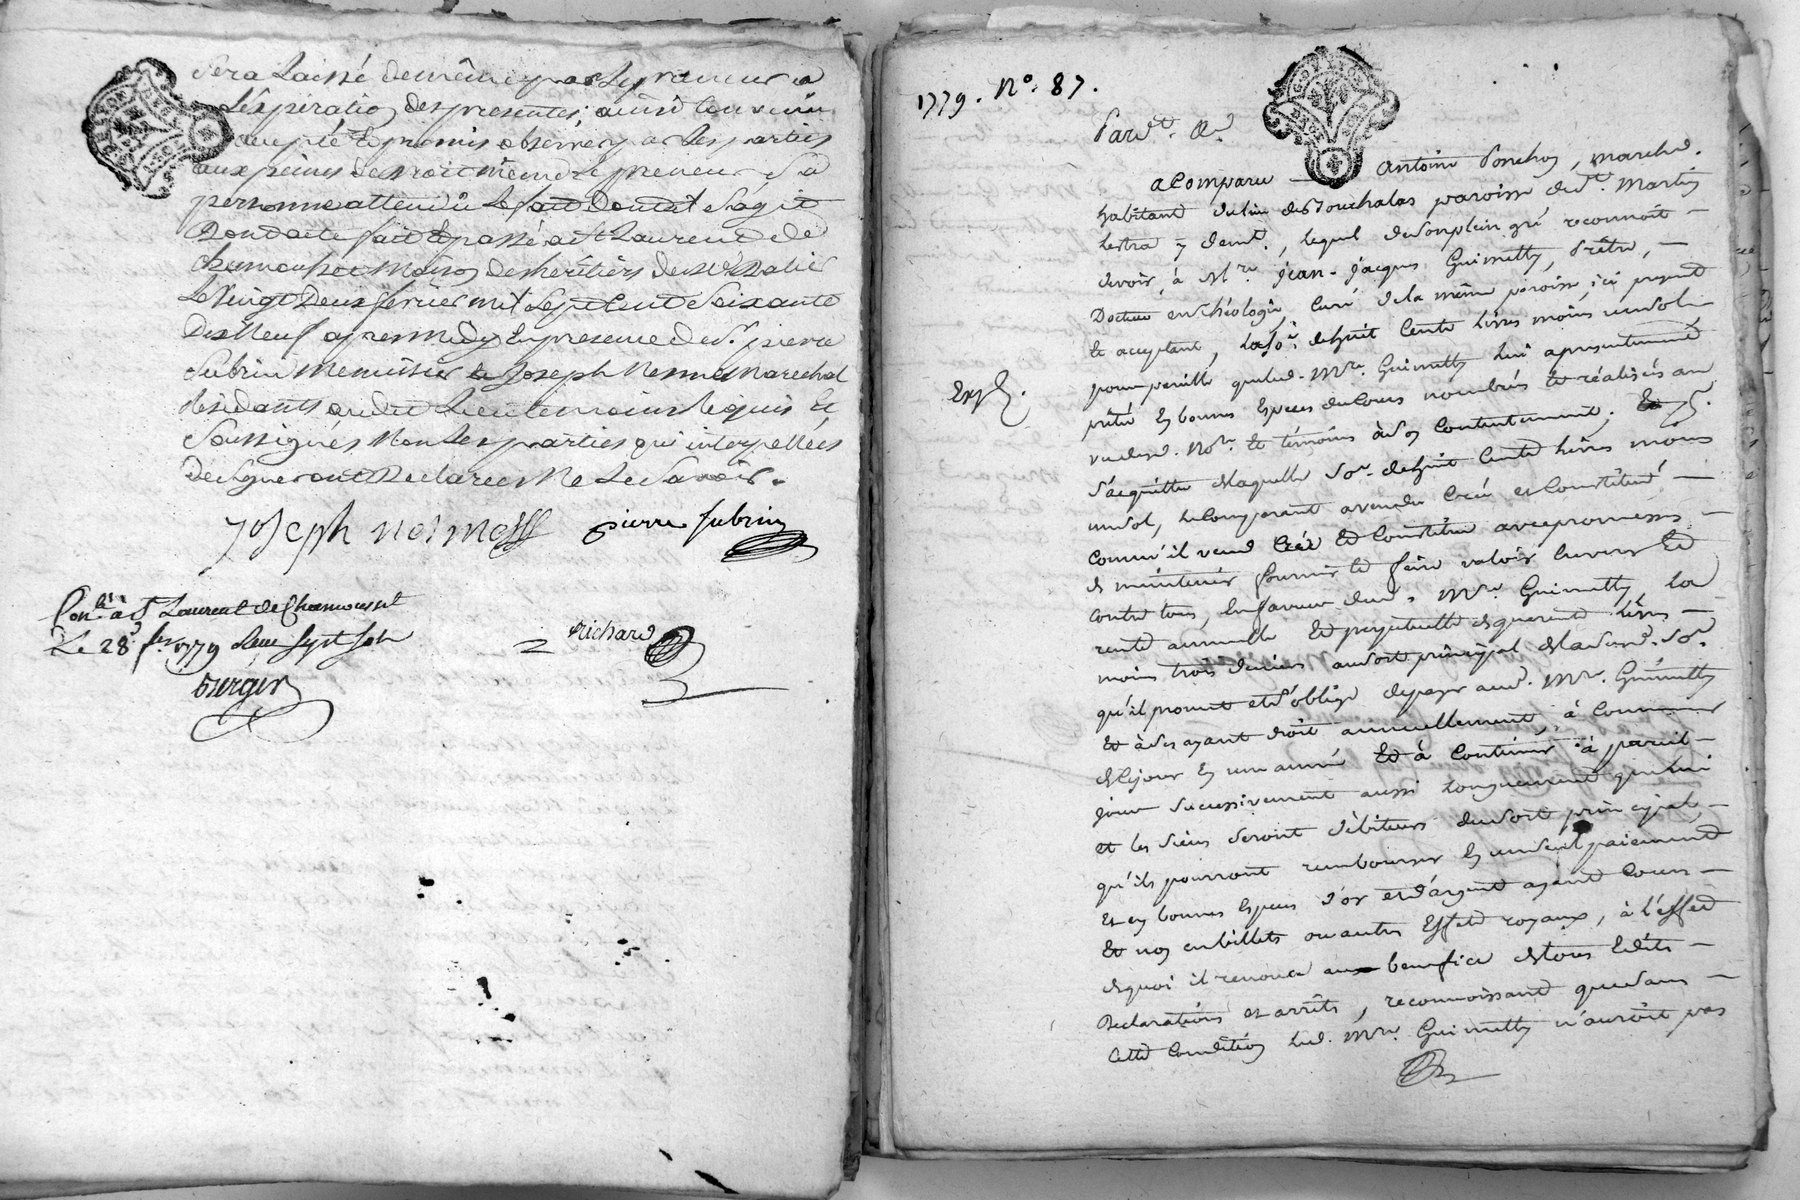 Sera Laissé de même par le preneur a
L'éxpiration des presentes; ainsi Convenu
accepté Et promis observer par Les parties
aux peines de droit même Le preneur Sa
personne attendu Le fait Dont il S'agit
Dont acte fait Et passé a St Laurent de
chamousset Maison des heritiers de
Le Vingt Deux fevrier mil Sept Cent Soixante
Dix Neuf apres midy En presence de Sr. pierre
Subrin Menuisier & Joseph Marechal
Residants audit Lieu temoins requis Et
Soussignés Non Les parties qui interpellées
De Signer ont Declarées Ne Le Savoir.
Joseph pierre Subrin
Conlé à St Laurent de Chamousset
Le 28 fev 1779 Reçu Sept Sols
Richard
Berger
1779. No. 87.
Pardt. &c.
a Comparu Antoine Ponchon, marchd.
habitant du lieu des Touchalas paroisse de St. Martin
Lestra y demt., lequel de son plein gré reconnoit
devoir, à Mre. Jean-Jacques Guimetty, Prêtre,
Docteur en théologie, Curé de la même paroisse, ici present
Et acceptant, la so. de huit Cents livres moins un sol
pour pareille que led. Mre. Guimetty lui a presentement
prété En bonnes Especes du Cours nombrées Et réalisées au
vu desd. Nore. Et témoins à son Contentement; Et pr.
S'acquitter de laquelle Some. de huit Cents livres moins
un sol, le Comparant a vendu Créé et Constitué
comm'il vend Crée Et Constitue avec promesses
de maintenir fournir Et faire valoir Envers Et
Contre tous, En faveur dud. Mre. Guimetty, la
rente annuelle Et perpetuelle de quarante livres
moins trois deniers au sort principal de lad. Som.
qu'il promet et s'oblige de payer aud. Mre. Guimetty
Et à ses ayant droit annuellement, à Commencer
de Ce jour En une année Et à Continuer à pareil
jour Successivement aussi longuement que lui
et les Siens Seront débiteurs du sort principal
qu'ils pourront rembourser En un seul paiement
Et en bonnes Especes d'or et d'argent ayant Cours
Et non en billets ou autres Effets royaux, à l'effet
de quoi il renonce au benefice de tous Edits
Declarations et arrêts, reconnoissant que sans
Cette Condition led. Mre. Guimetty n'auroit pas